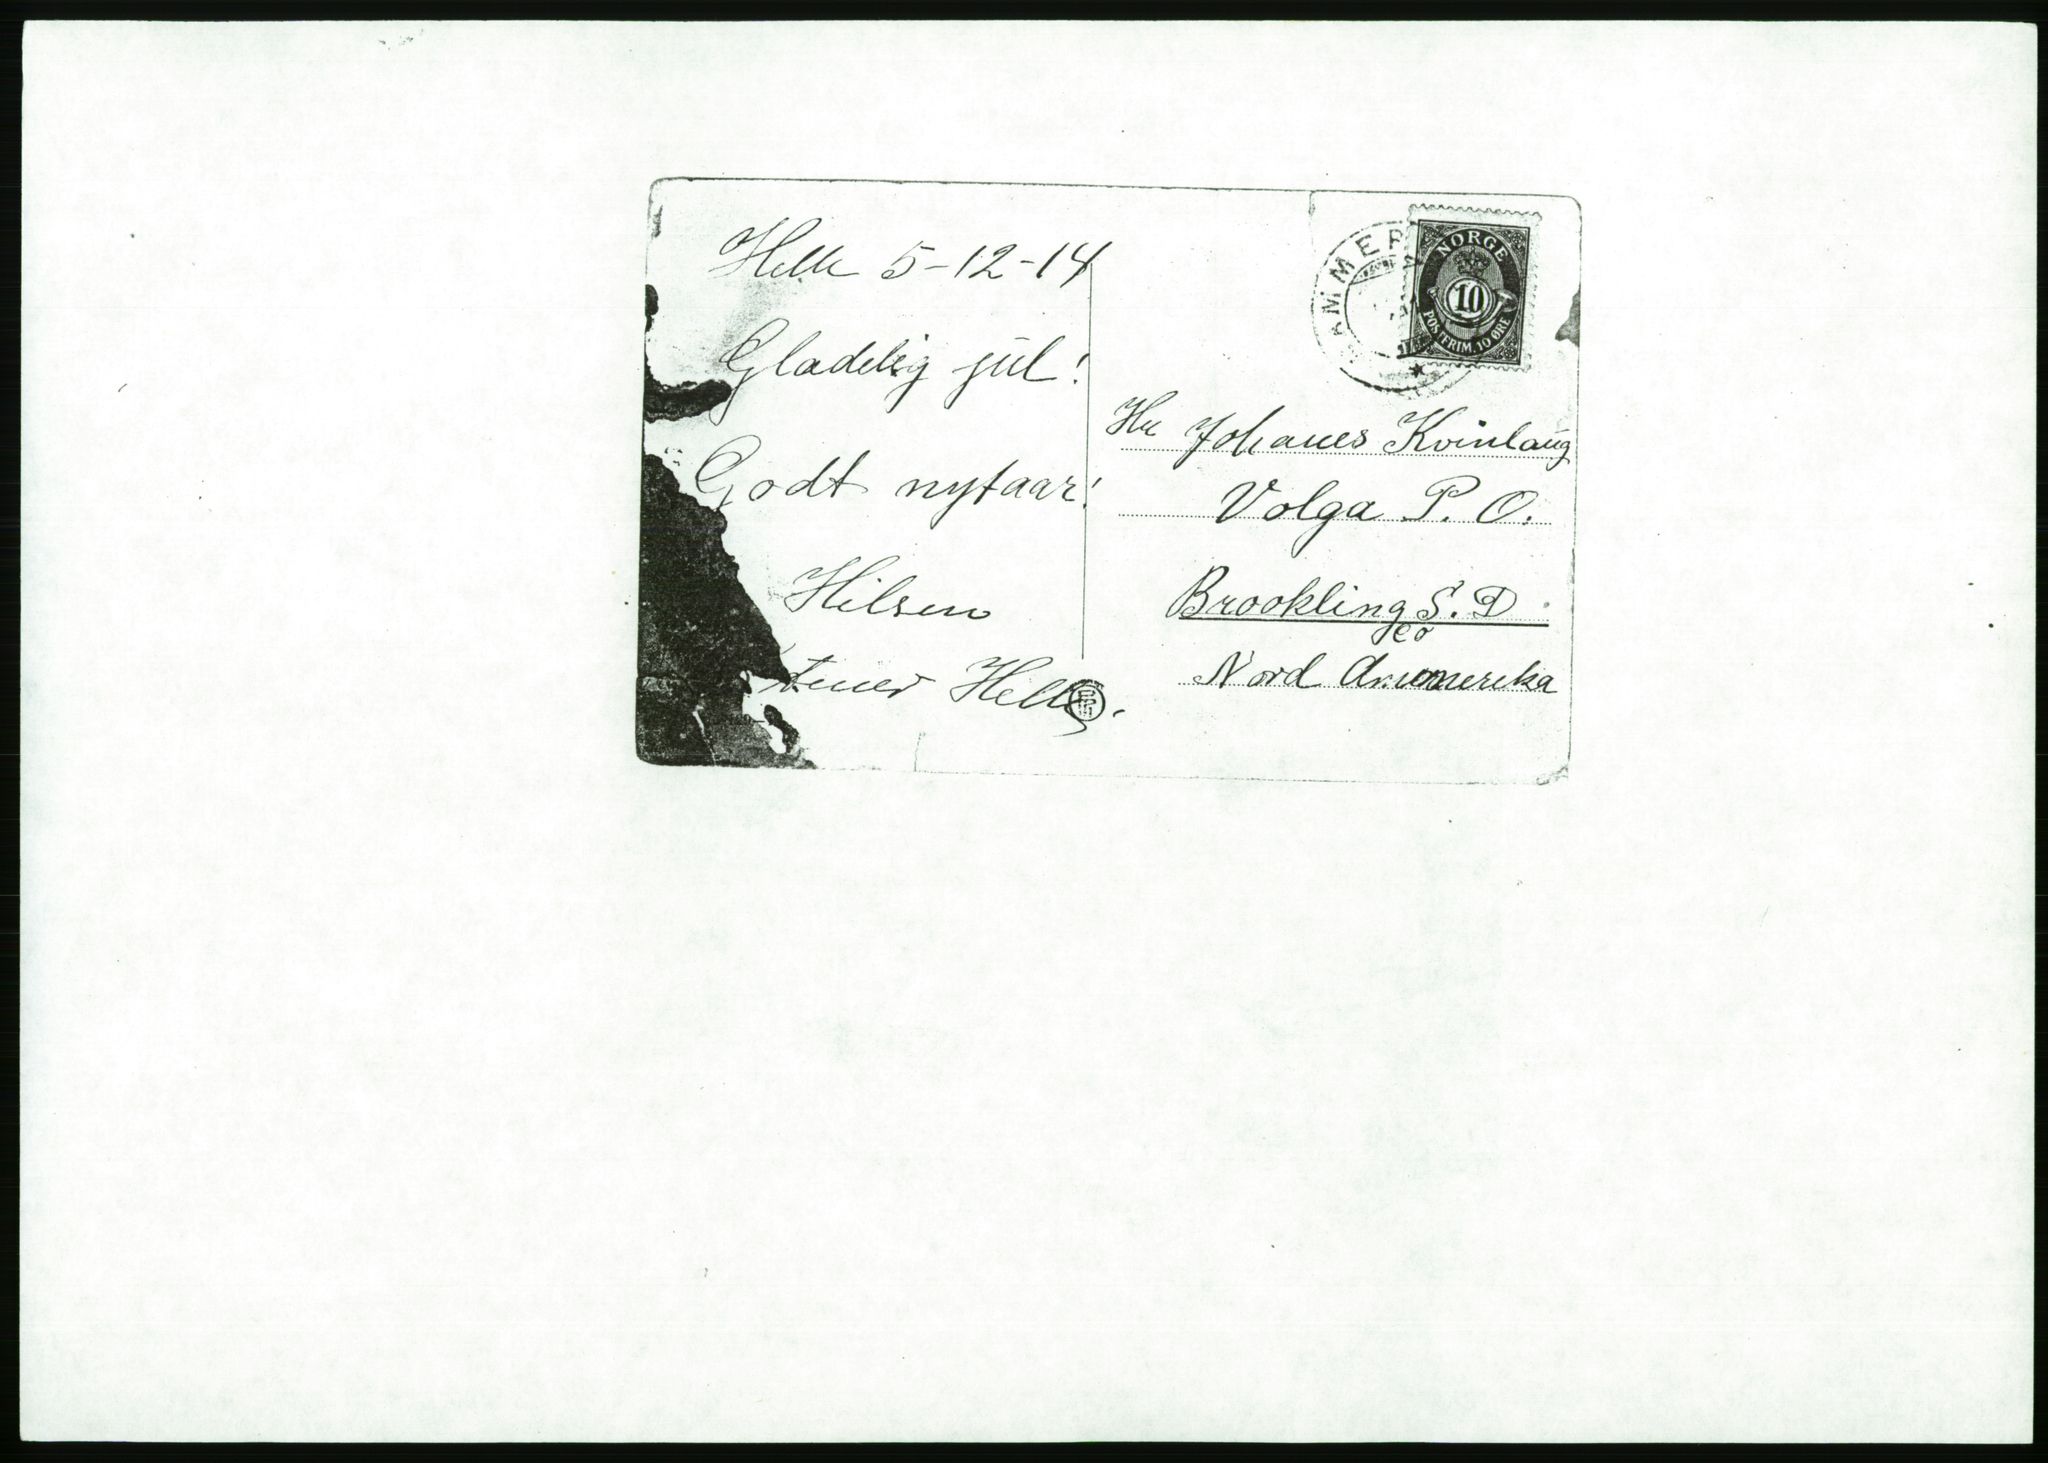 Helle 5-12-14
Gladelig jul!
Godt nytaar!
Hilsen
Helle.
NORGE
10
POSTFRIM. 10 ØRE
Hr Johanes Kvinlaug
Volga P. O.
Brookling S. D
co
Nord Amerika